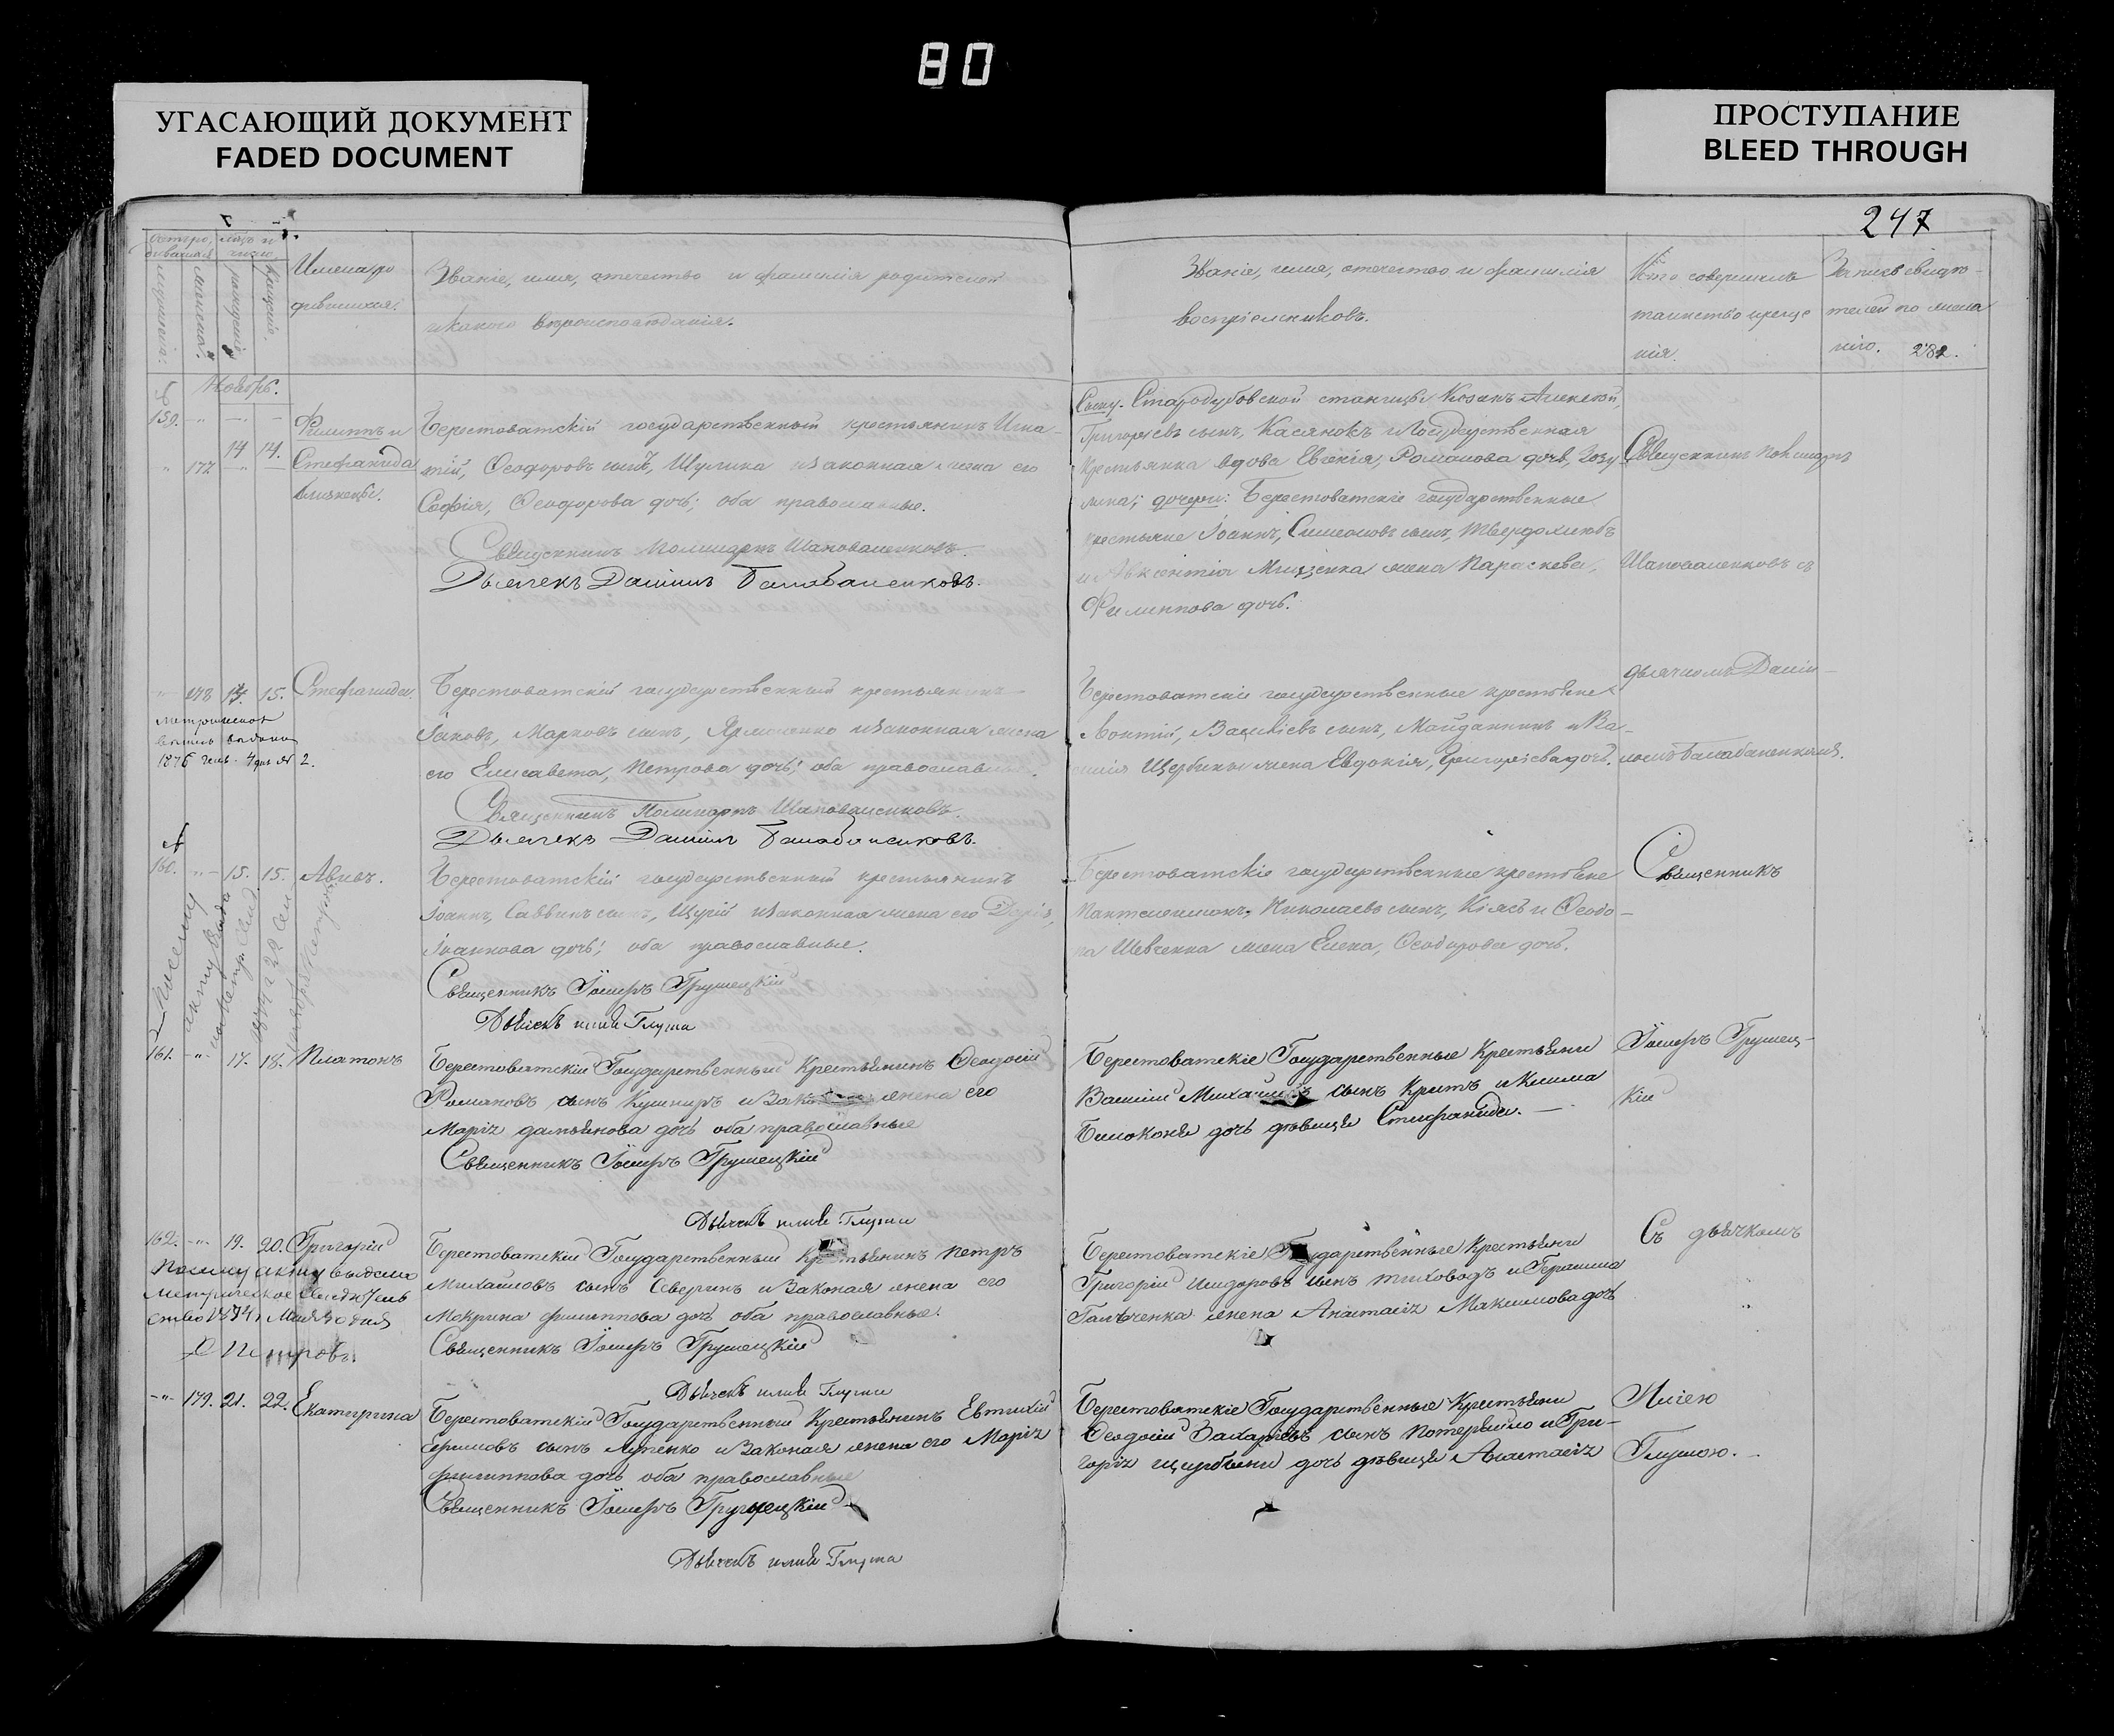 80
УГАСАЮЩИЙ ДОКУМЕНТ
FADED DOCUMENT
ПРОСТУПАНИЕ
BLEED THROUGH
247
Имена ро
дившихся.
Званіе, имя, отечество и фамилія родителей
и какого вѣроисповѣданія.
Званіе, имя, отечество и фамилія
воспріемниковъ.
Кто совершилъ
таинство креще
нія.
Ноябрь.
159. 14 14. Филиппъ и
172 Стефанида
близнецы.
Берестоватскій государственный крестьянинъ Игна-
тій, Ѳеодоровъ сынъ, Шулика и законная жена его
Софія, Ѳеодорова дочь; оба православные.
Священникъ Поликарпъ Шаповаленковъ.
Дьячекъ Даніилъ Балабаненковъ.
Сыну. Стародубовской станицы Козакъ Алексѣй,
Григорьевъ сынъ, Касянокъ и Государственная
крестьянка вдова Евгенія, Романова дочь, Зозу
лина; дочери: Берестоватскіе государственные
крестьяне Іоаннъ, Симеоновъ сынъ, Твердохлѣбъ
и Авксентія Мищенка жена Параскева,
Филиппова дочь.
Священникъ Поликарпъ
Шаповаленковъ съ
дьячкомъ Даніи-
ломъ Балабаненкомъ.
15. Стефанида.
Берестоватскій государственный крестьянинъ
Іаковъ, Марковъ сынъ, Ярмоленко и законная жена
его Елисавета, Петрова дочь; оба православные.
Священникъ Поликарпъ Шаповаленковъ.
Дьячекъ Даніилъ Балабаненковъ.
Берестоватскіе государственные крестьяне
Леонтій, Василіевъ сынъ, Майданникъ и Ва-
силія Щербины жена Евдокія, Григоріева дочь.
160. 15. 15. Авивъ.
Берестоватскій государственный крестьянинъ
Іоаннъ, Саввинъ сынъ, Цурій и законная жена его Дарія,
Іоаннова дочь; оба православные.
Священникъ Іосифъ Грушецкій
Дьячекъ Илія Глуша
Берестоватскіе государственные крестьяне
Пантелеимонъ, Николаевъ сынъ, Кіясь и Ѳеодо-
ра Шевченка жена Елена, Ѳеодорова дочь.
Священникъ
Іосифъ Грушец-
кій
161. 17. 18. Платонъ
Берестоватскій Государственный Крестьянинъ Ѳеодосій
Романовъ сынъ Кушниръ и жена его
Марія дамьянова дочь оба православные
Священникъ Іосифъ Грушецкій
Дьячекъ Илія Глуша
Берестоватскіе Государственные Крестьяни
Василій Михаиловъ сынъ Критъ и Клима
Билоконя дочь дѣвица Стефанида.
162. 19. 20. Григорій
Берестоватскій Государственный Крестьянинъ Петръ
Михаиловъ сынъ Северинъ и Законая жена его
Мокрина филиппова дочь оба православные.
Священникъ Іосифъ Грушецкій
Дьячекъ Илія Глуша
Берестоватскіе Государственные Крестьяни
Григорій Исидоровъ сынъ Тиховодъ и Герасима
Галѣченка жена Анастасія Максимова дочь
Съ дьячкомъ
179. 21. 22. Екатирина
Берестоватскій Государственный Крестьянинъ Евтихій
Ефимовъ сынъ Луценко и Законая жена его Марія
филиппова дочь оба православные
Священникъ Іосифъ Грушецкій
Дьячекъ Илія Глуша
Берестоватскіе Государственные Крестьяни
Ѳеодосій Захаріевъ сынъ Потеряйло и Гри-
горія щирбини дочь дѣвица Анастасія
Иліею
Глушою.